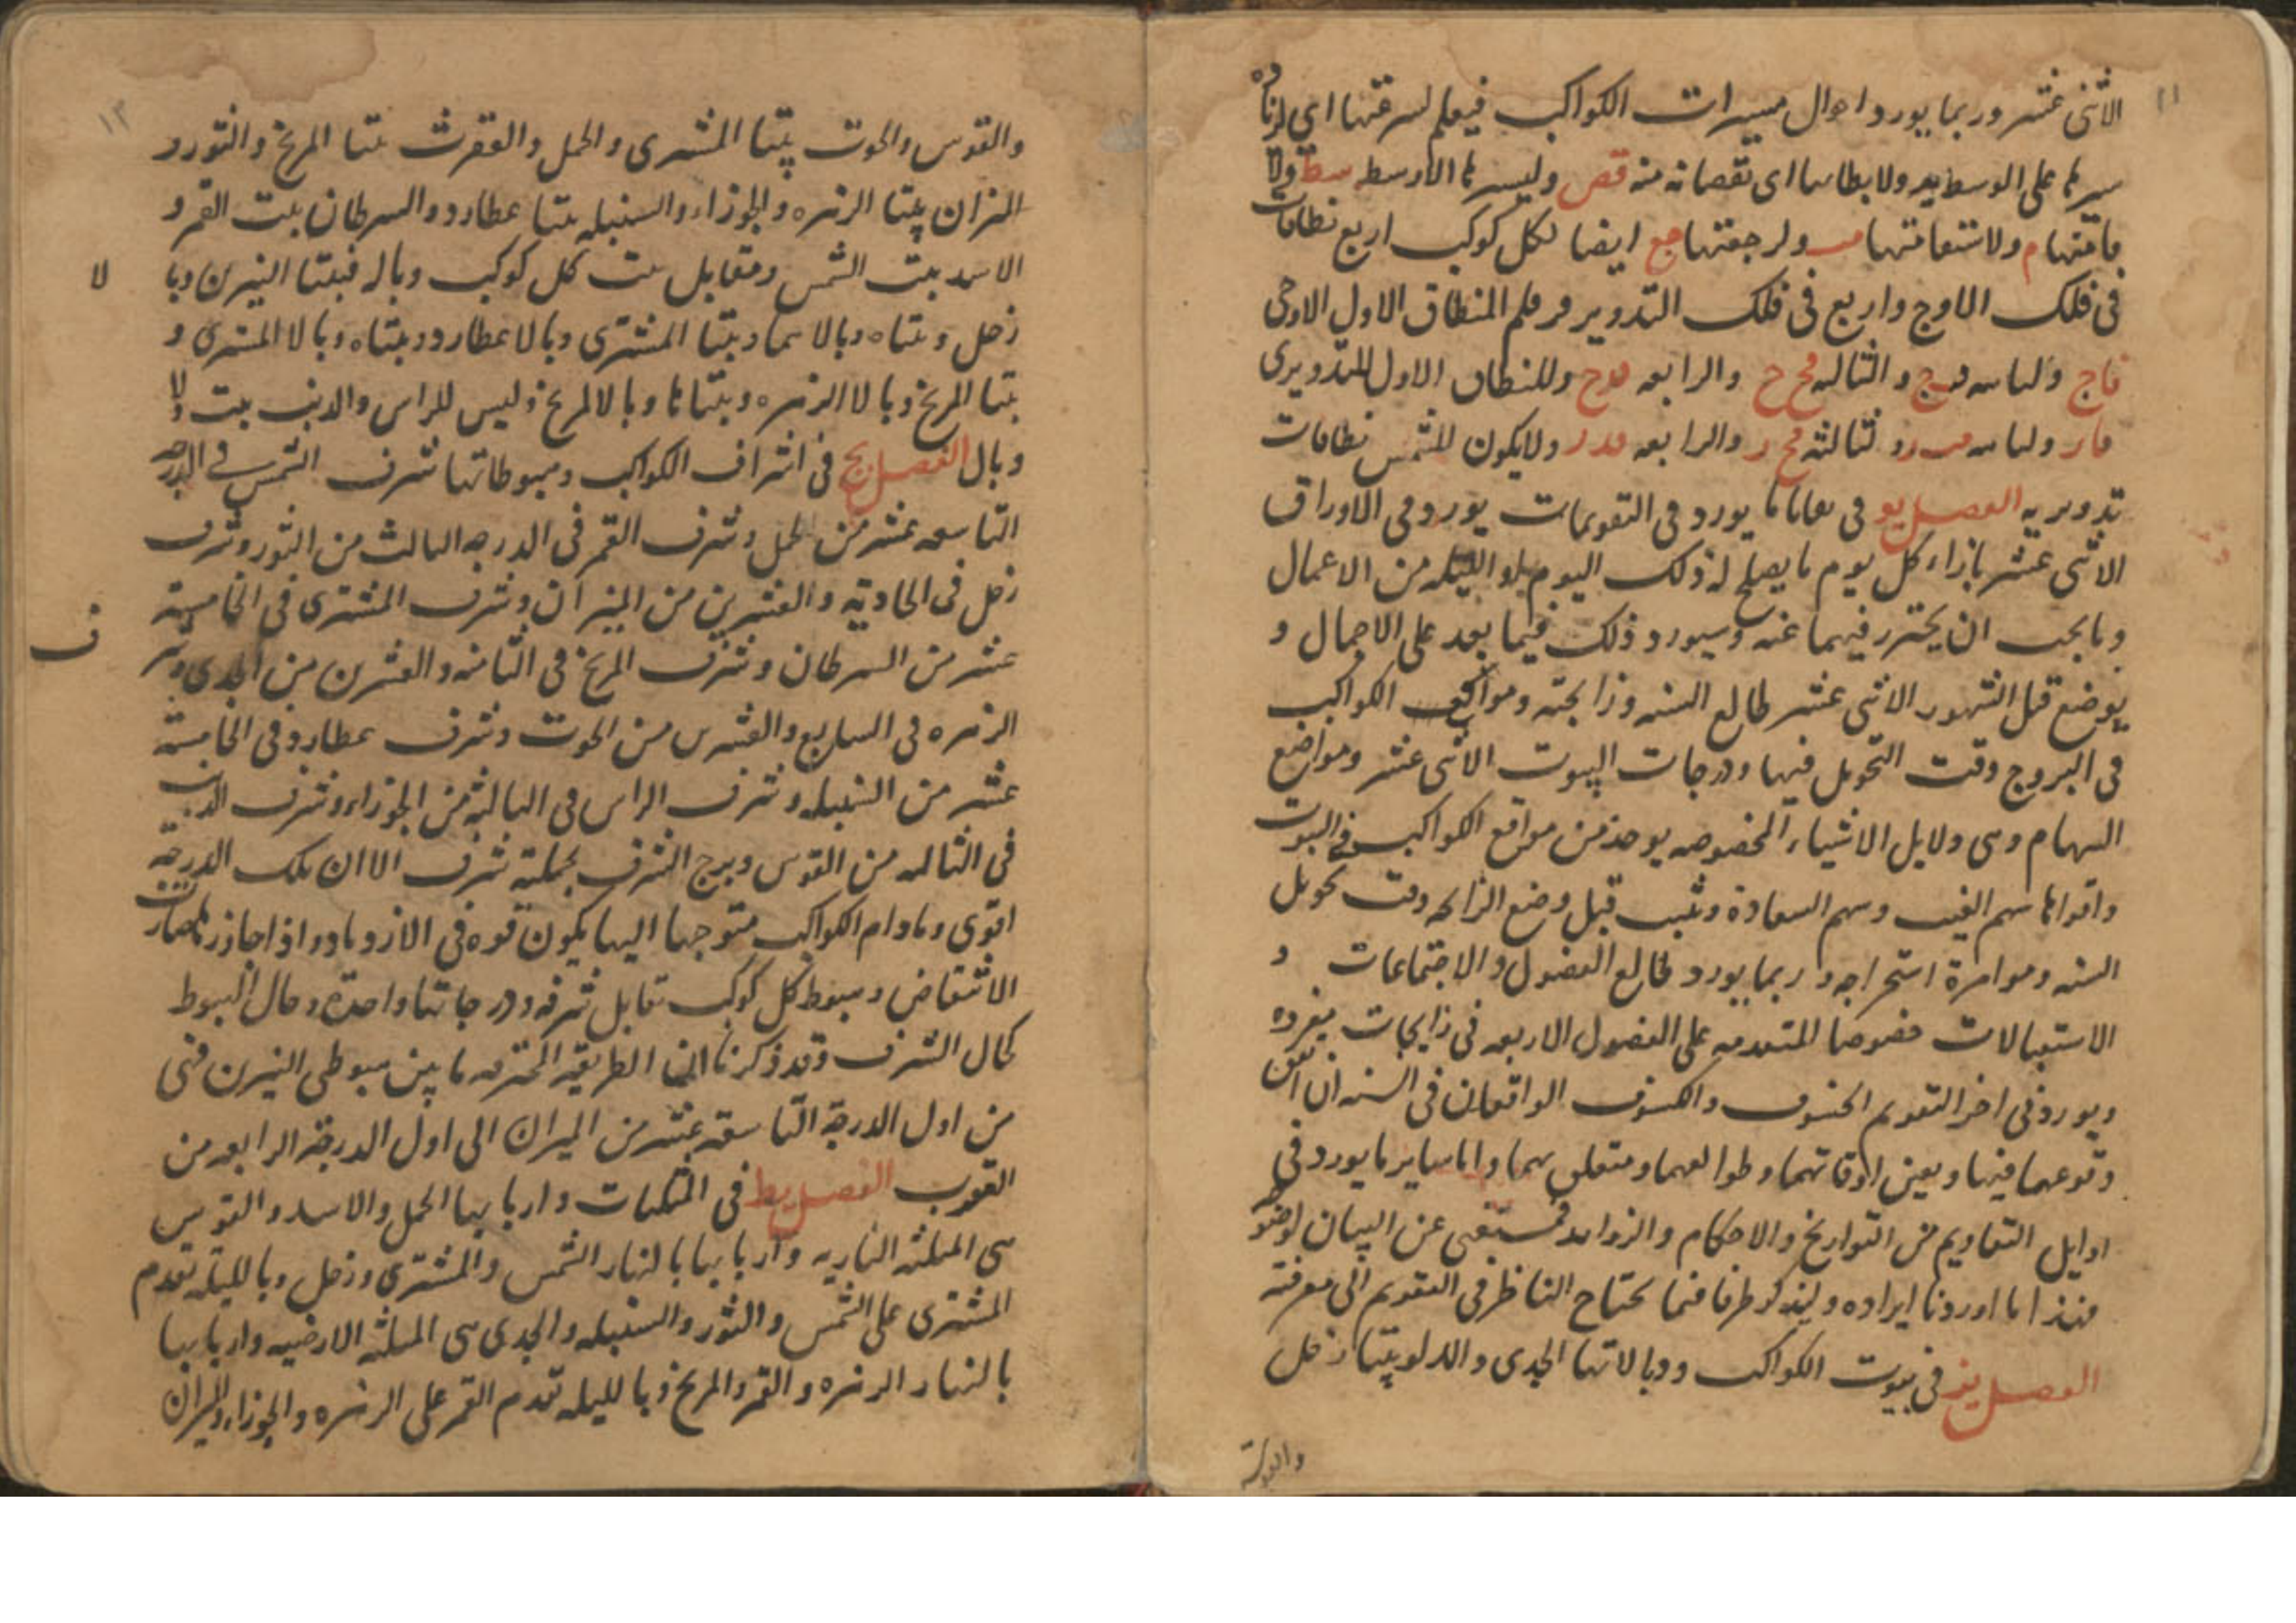 الاثنى عشر وربما يورد احوال مسيرات الكواكب فيعلم لسرعتها اى لزياده
سيرها على الوسط يد ولا بطائها اى نقصانه منه قص وليسرها الاوسط سط ولا
قامتها م ولاستقامتها مب ولرجعتها جع ايضا لكل كوكب اربع نطاقات
فى فلك الاوج واربع فى فلك التدوير فرقم النطاق الاول الاوجى
فاج والثالثه فج ج والرابعه فدج وللنطاق الاول التدويرى
والرابعه فدر ولايكون للشمس نطاقات
تدويريه الفصل يو فى بقايا ما يورد فى التقويمات يورد فى الاوراق
الاثنى عشر بازاء كل يوم ما يصلح له ذلك اليوم او الليله من الاعمال
وما يجب ان يحترز فيهما عنه وسيورد ذلك فيما بعد على الاجمال و
يوضع قبل الشهور الاثنى عشر طالع السنه وزايجته ومواقع الكواكب
فى البروج وقت التحويل فيها ودرجات البيوت الاثنى عشر ومواضع
السهام وهى دلايل الاشياء المخصوصه يوخذ من مواقع الكواكب فى البيوت
واقواها سهم الغيب وسهم السعادة وثبت قبل وضع الزايجه وقت تحويل
السنه ومواترة استخراجه وربما يورد طالع الفصول والاجتماعات و
الاستقبالات خصوصا المتقدمه على الفصول الاربعه فى زايجات مفرده
ويورد فى اخر التقويم الخسوف والكسوف الواقعان فى السنه ان اتفق
وقوعهما فيها ويعين اوقاتهما وطوالعهما ومتعلق بهما واما ساير ما يورد فى
اوايل التقاويم من التواريخ والاحكام والزوايد فمستغنى عن البيان لوضوحه
فهذا ما اوردنا ايراده ولنذكر طرفا فيما يحتاج الناظر فى التقويم الى معرفته
الفصل يز فى بيوت الكواكب ووبالاتها الجدى والدلو بيتا زحل
والقوس
والقوس والحوت بيتا المشترى والحمل والعقرب بيتا المريخ والثور و
الميزان بيتا الزهره والجوزاء والسنبله بيتا عطارد والسرطان بيت القمر و
الاسد بيت الشمس ومقابل بيت كل كوكب وباله فبيتا النيرين وبالا
زحل وبيتاه وبالاهما وبيتا المشترى وبالا عطارد وبيتاه وبالا المشترى و
بيتا المريخ وبالا الزهره وبيتاها وبالا المريخ وليس للراس والذنب بيت ولا
وبال الفصل يح فى اشراف الكواكب وهبوطاتها شرف الشمس فى الدرجه
التاسعه عشر من الحمل وشرف القمر فى الدرجه الثالث من الثور وشرف
زحل فى الحاديه والعشرين من الميزان وشرف المشترى فى الخامسة
عشر من السرطان وشرف المريخ فى الثامنه والعشرين من الجدى وشرف
الزهره فى السابع والعشرين من الحوت وشرف عطارد فى الخامسة
عشر من السنبله وشرف الراس فى الثالثة من الجوزاء وشرف الذنب
فى الثالثه من القوس وبرج الشرف بجملته شرف الا ان تلك الدرجة
اقوى ومادام الكواكب متوجها اليها يكون قوه فى الازدياد واذا جاوزها صارت
الانتقاض وهبوط كل كوكب تقابل شرفه ودرجاتها واحدة وحال الهبوط
كحال الشرف وقد ذكرنا ان الطريقه المحترقه ما بين هبوطى النيرين فهى
من اول الدرجة التاسعة عشر من الميزان الى اول الدرجة الرابعه من
العقرب الفصل يط فى المثلثات واربابها الحمل والاسد والقوس
هى المثلثه الناريه واربابها بالنهار الشمس والمشترى وزحل وبالليله تقدم
المشترى على الشمس والثور والسنبله والجدى هى المثلثه الارضيه واربابها
بالنهار الزهره والقمر والمريخ وبالليله تقدم القمر على الزهره والجوزاء والميزان